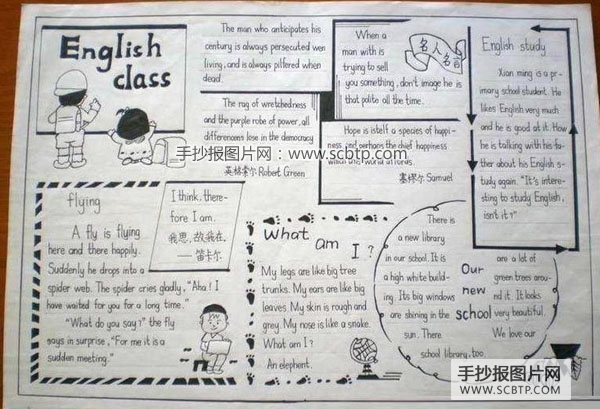 English
class
The man who anticipates his
century is always persecuted wen
living, and is always pilfered when
dead.
The rag of wretchedness
and the purple robe of power, all
differences lose in the democracy
英格索尔 Robert Green
When a
man with is
trying to sell
you something, don't image he is
that polite all the time.
名人名言
Hope is itself a species of happi-
ness, and perhaps the chief happiness
which this world affords.
塞缪尔 Samuel
English study
Xian ming is a pr-
imary school student. He
likes English very much
and he is good at it. How
he is talking with his fa-
ther about his English s-
tudy again. "It's intere-
sting to study English,
isn't it?"
手抄报图片网:www.scbtp.com
flying
A fly is flying
here and there happily.
Suddenly he drops into a
spider web. The spider cries gladly, "Aha! I
have waited for you for a long time."
"What do you say?" the fly
says in surprise, "For me it is a
sudden meeting."
I think, there-
fore I am.
我思,故我在.
——笛卡尔
What am I?
My legs are like big tree
trunks. My ears are like big
leaves. My skin is rough and
grey. My nose is like a snake.
What am I?
An elephent.
Our
new
school
There is
a new library
in our school. It is
a high white build-
ing. Its big windows
are shining in the
sun. There
are a lot of
green trees arou-
nd it. It looks
very beautiful.
We love our
school library, too.
手抄报图片网
WWW.SCBTP.COM